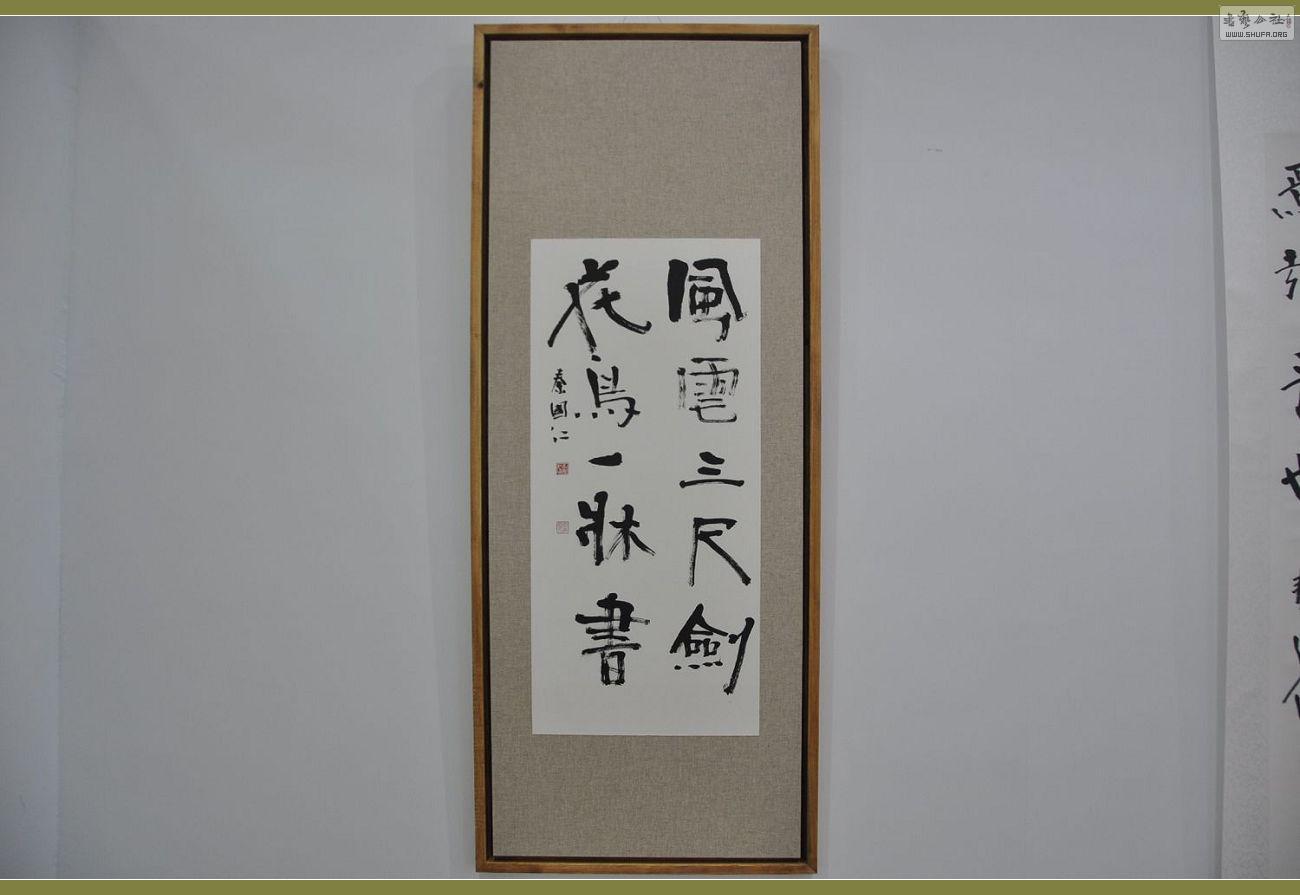 風雲三尺劍
花鳥一牀書
秦國仁
書藝公社
WWW.SHUFA.ORG